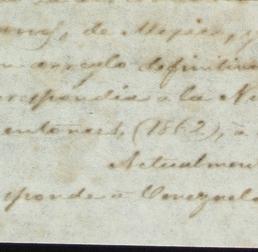 de Mexico, y
arreglo definitivo
respondia a la Nu
entonces, (1862), a
Actualmen
sponde a Venezuela